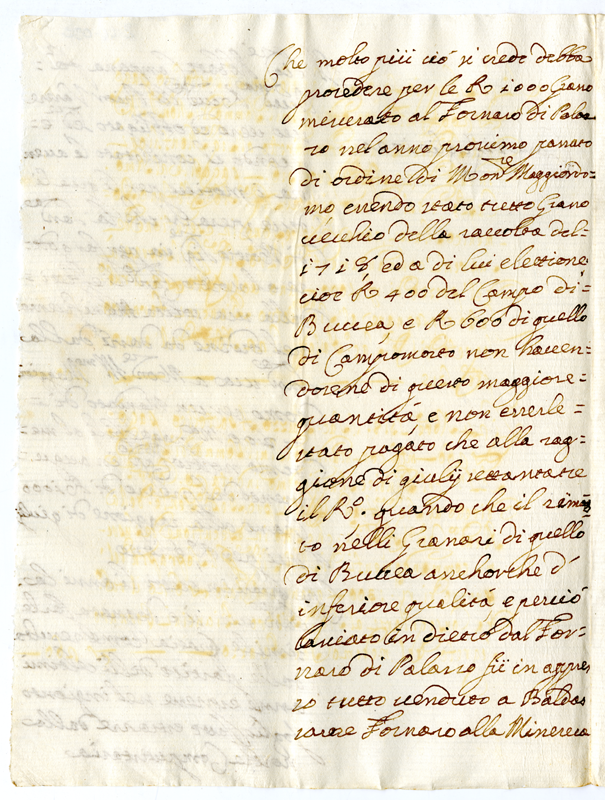 Che molto più ciò si crede debba
procedere per le R 1000 Grano
mercato al Fornaro di Palaz
zo nel anno prossimo passato
di ordine di Mons.re Maggiordo=
mo essendo stato tutto Grano
vecchio della raccolta del=
1718 ed a di lui elettione
cioè R 400 del Campo di=
Buccea, e R 600 di quello
di Campomorto non haven=
dosene di questo maggiore=
quantità e non esserle=
stato pagato che alla rag=
gione di giulij settantatre
il R.o quando che il rimas
to nelli Granari di quello
di Buccea anchorche d'
inferiore qualità, e perciò
lasciato in dietro dal For=
naro di Palazzo fù in appres
so tutto venduto a Baldas
sarre Fornaro alla Minerva